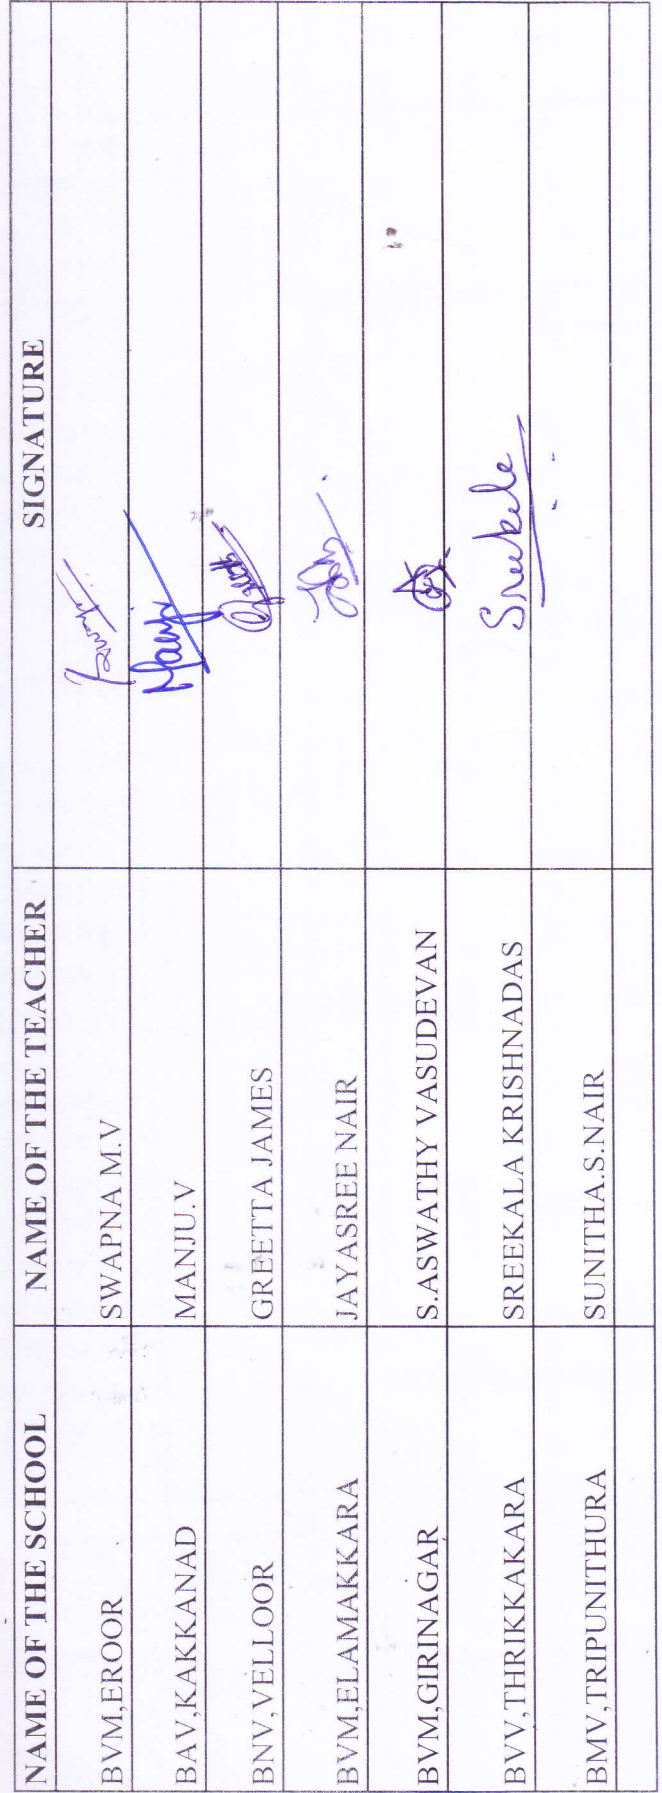 NAME OF THE SCHOOL NAME OF THE TEACHER SIGNATURE
BVM,EROOR SWAPNA M.V
BAV,KAKKANAD MANJU.V Manju
BNV,VELLOOR GREETTA JAMES
BVM,ELAMAKKARA JAYASREE NAIR
BVM,GIRINAGAR S.ASWATHY VASUDEVAN
BVV,THRIKKAKARA SREEKALA KRISHNADAS Sreekala
BMV,TRIPUNITHURA SUNITHA.S.NAIR